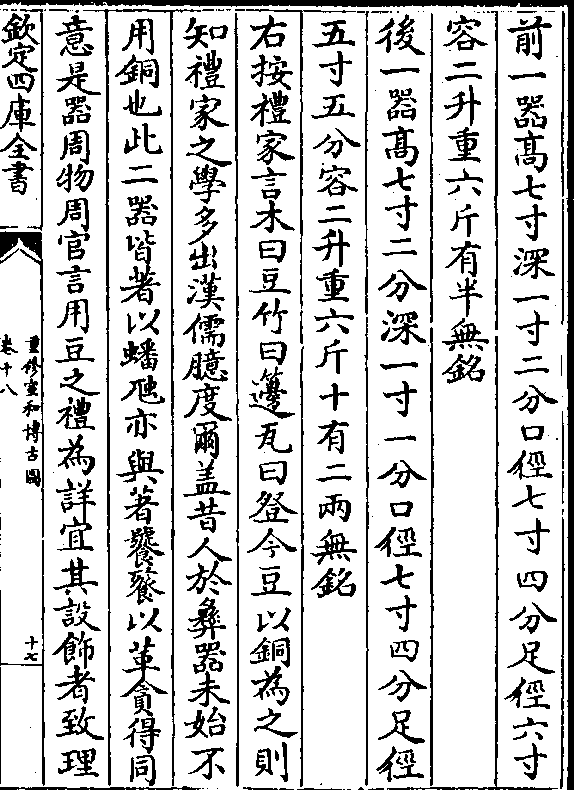 前一器髙七寸深一寸二分口徑七寸四分足徑六寸
容二升重六斤有半無銘
後一器髙七寸二分深一寸一分口徑七寸四分足徑
五寸五分容二升重六斤十有二兩無銘
右按禮家言木曰豆竹曰籩瓦曰豋今豆以銅為之則
知禮家之學多出漢儒臆度爾盖昔人於彝器未始不
用銅也此二器皆著以蟠虺亦與著饕餮以革貪得同
意是器周物周官言用豆之禮為詳宜其設飾者致理
欽定四庫全書
重修宣和博古圖
卷十八
十七